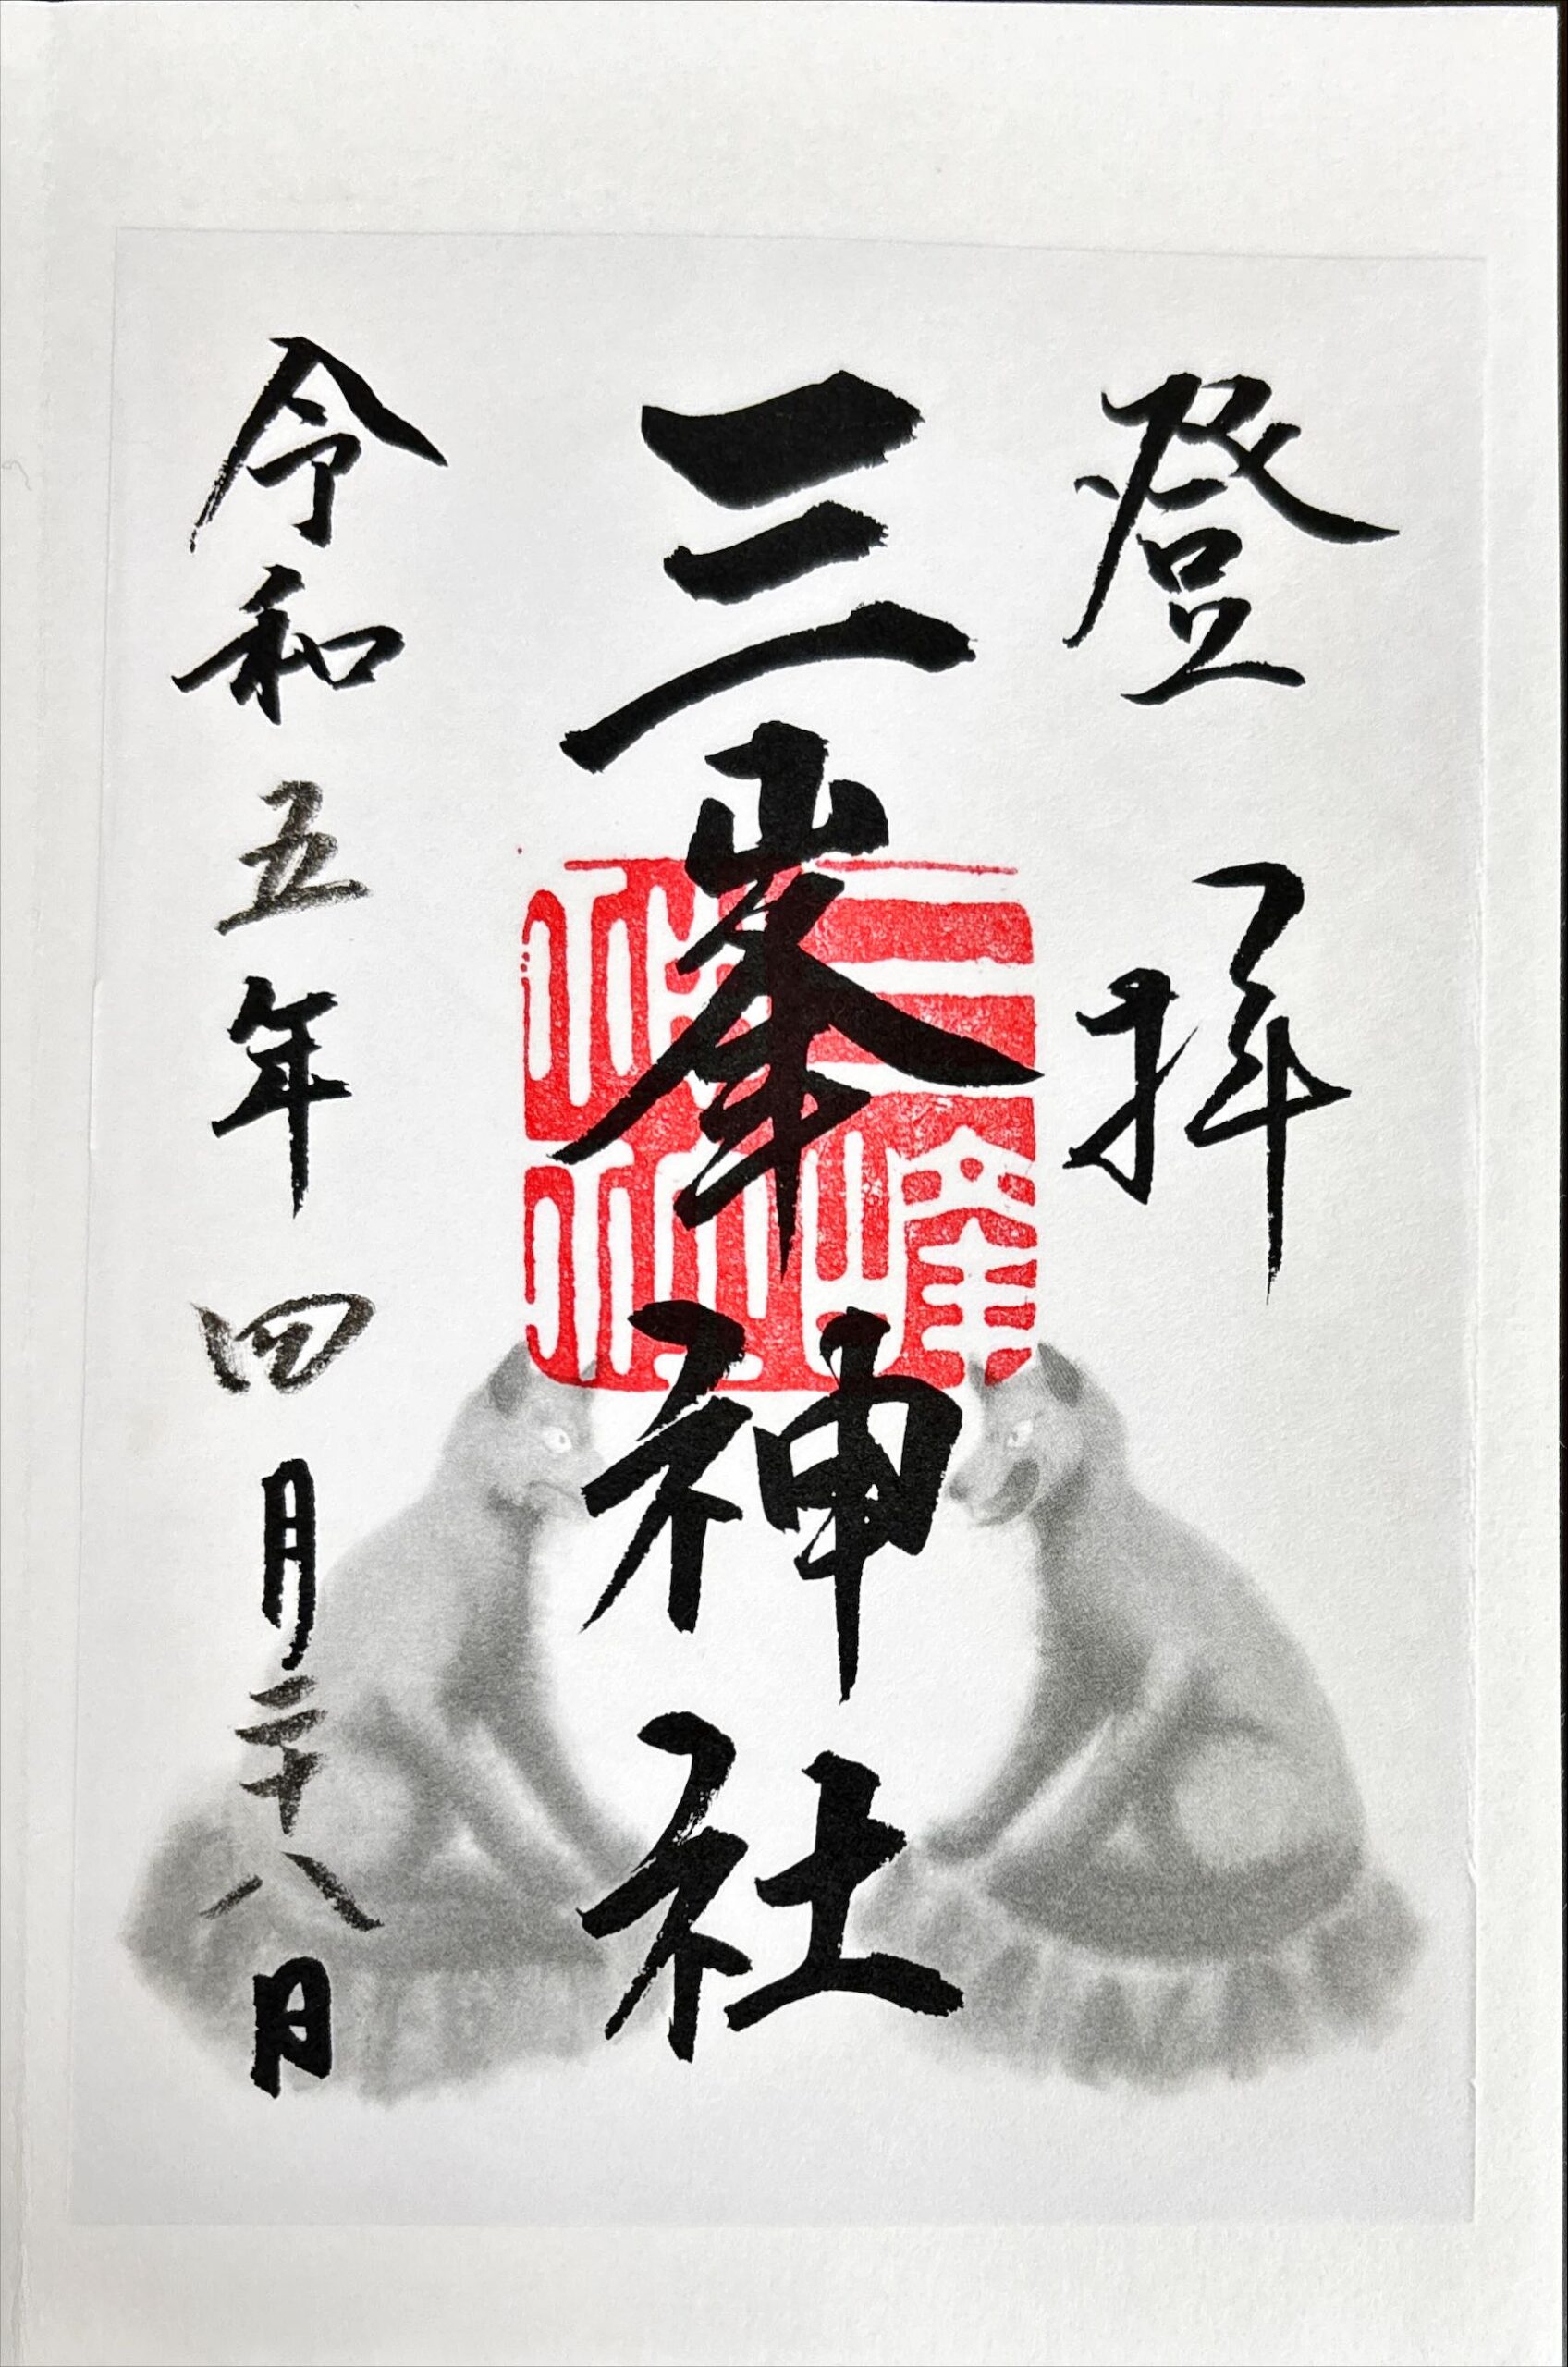 登拝
三峯神社
令和五年四月二十八日